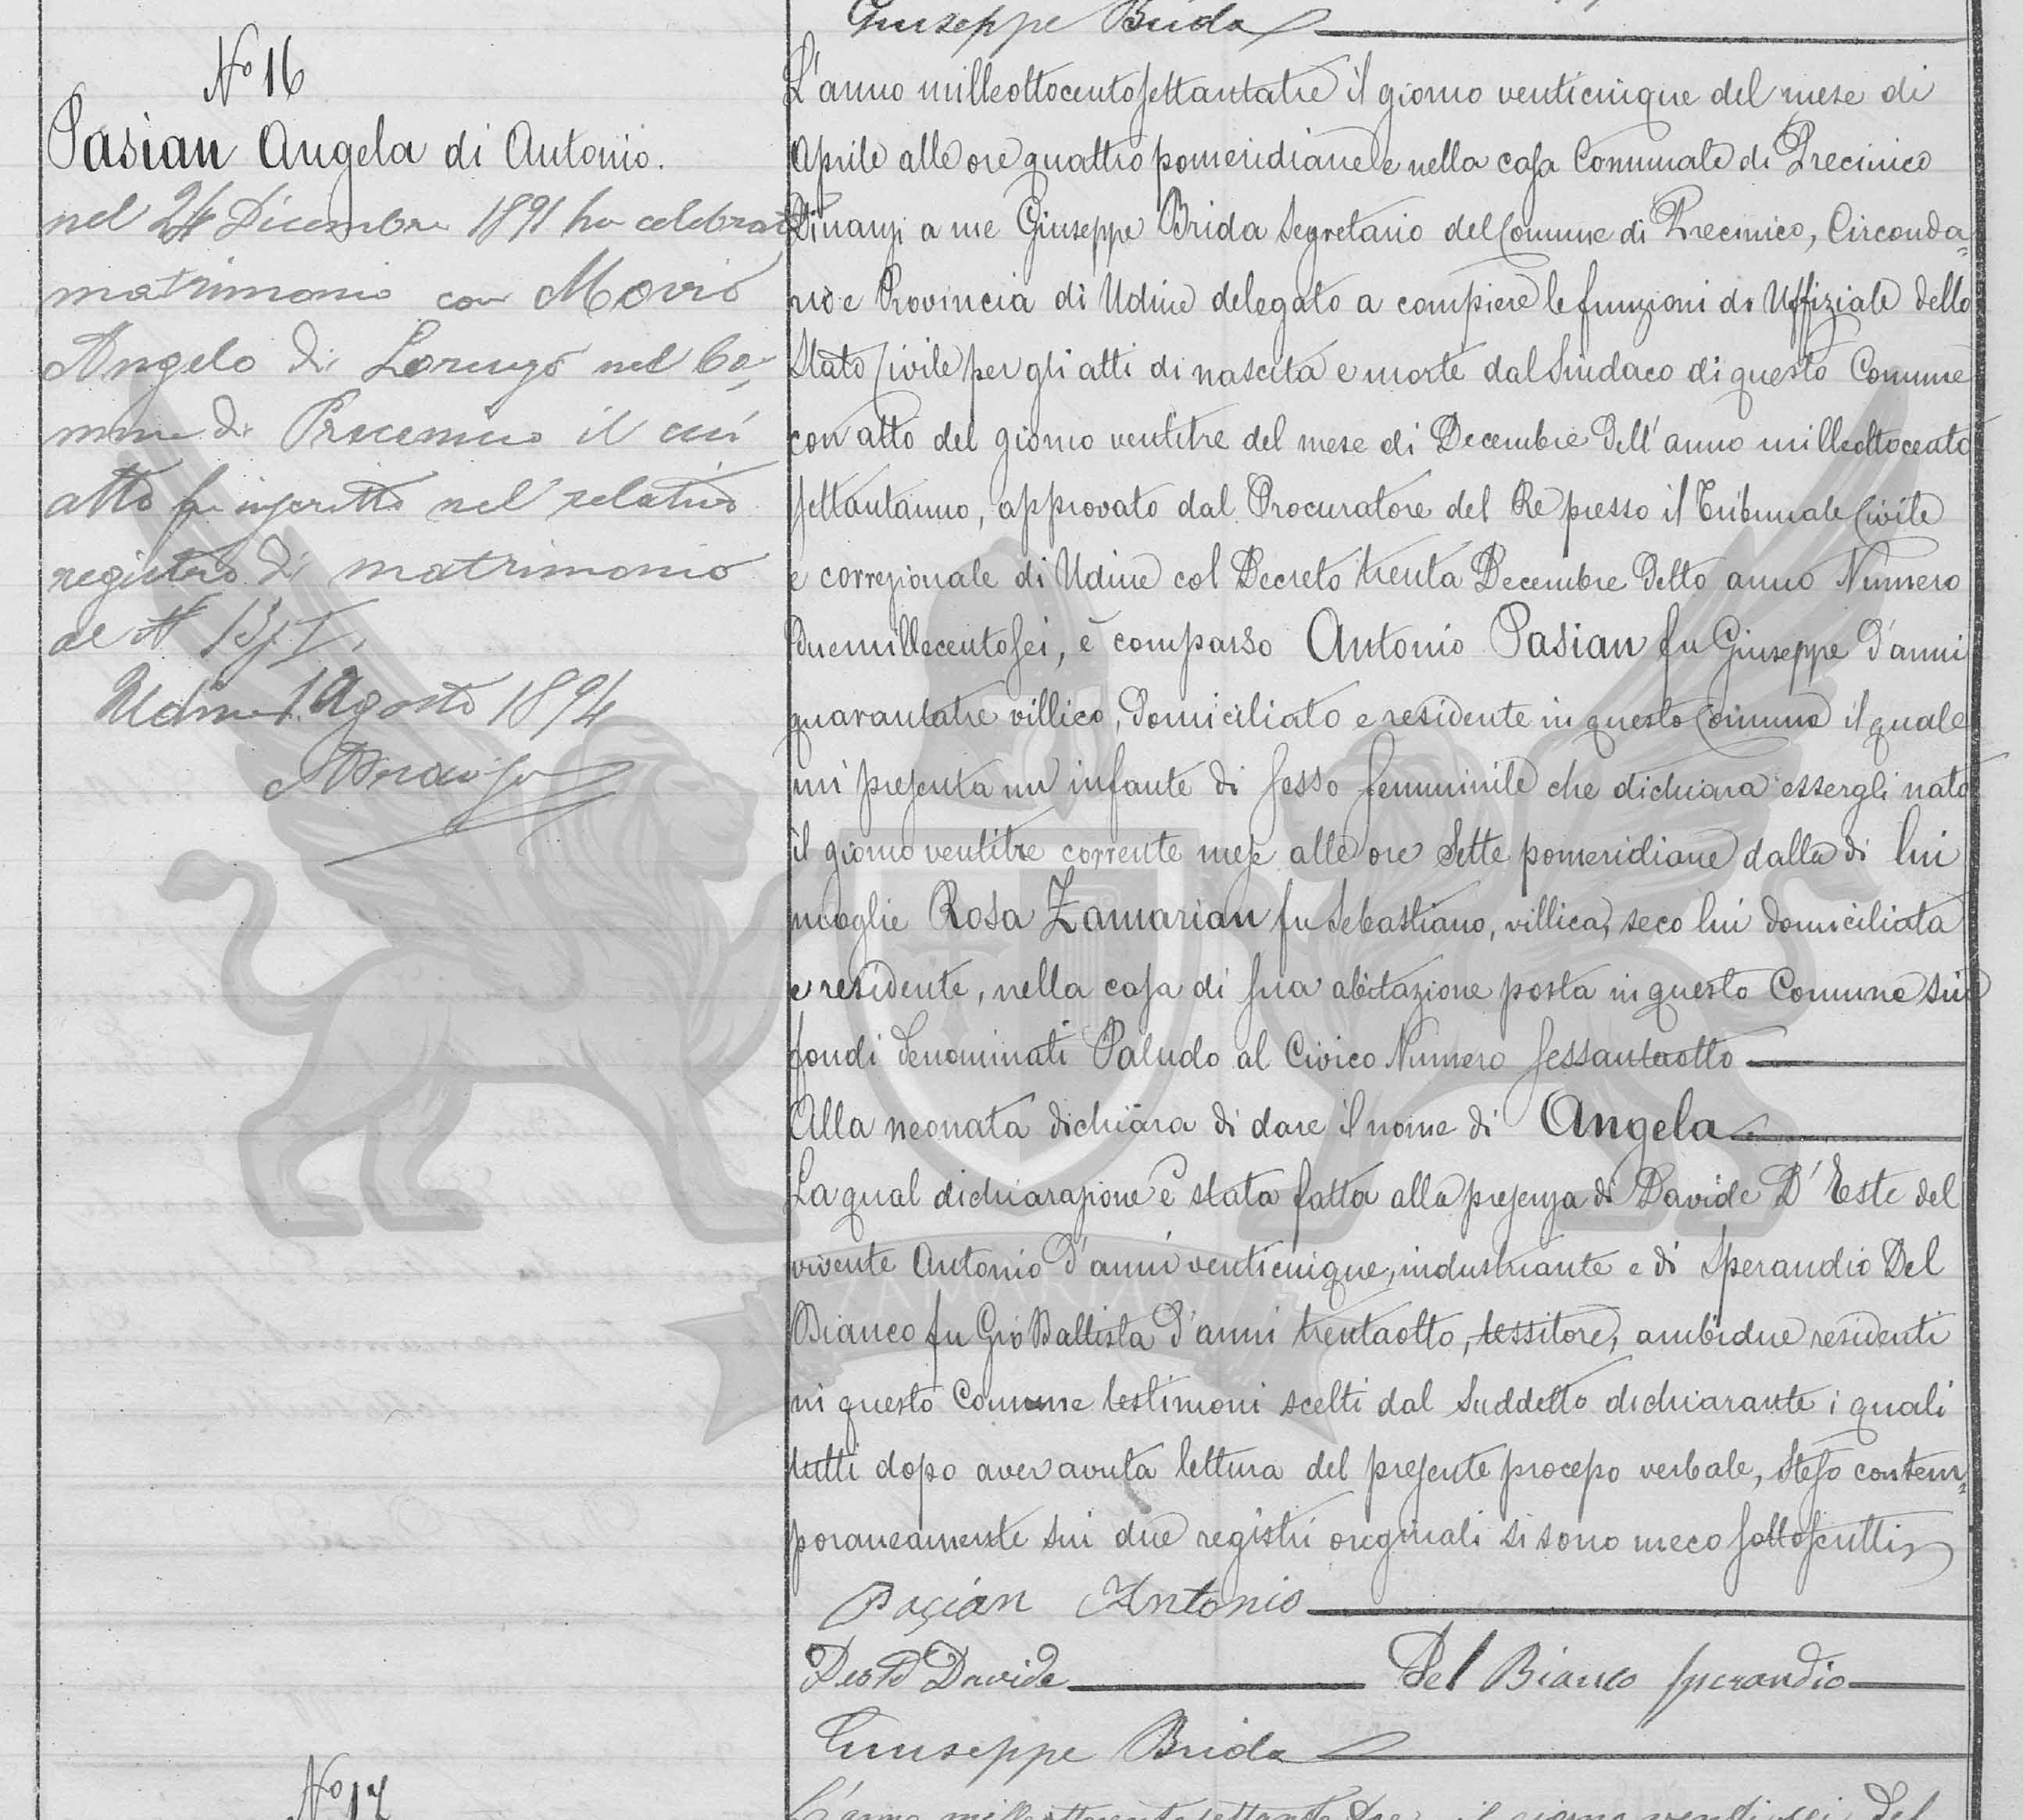 Giuseppe Brida
No 16
Pasian Angela di Antonio.
nel 24 Dicembre 1891 ha celebrato
matrimonio con Movio
Angelo di Lorenzo nel Co=
mune di Precenico il cui
atto fu inscritto nel relativo
registro di matrimonio
al N 13, I,
Udine 1 Agosto 1894
L'anno milleottocentosettantatre il giorno venticinque del mese di
Aprile alle ore quattro pomeridiane e nella casa Comunale di Precinico
Dinanzi a me Giuseppe Brida Segretario del Comune di Precinico, Circonda=
rio e Provincia di Udine delegato a compiere le funzioni di Uffiziale dello
Stato Civile per gli atti di nascita e morte dal Sindaco di questo Comune
con atto del giorno ventitre del mese di Decembre dell'anno milleottocento
settantauno, approvato dal Procuratore del Re presso il Tribunale Civile
e correzionale di Udine col Decreto trenta Decembre detto anno Numero
duemillecentosei, è comparso Antonio Pasian fu Giuseppe d'anni
quarantatre villico, domiciliato e residente in questo Comune il quale
mi presenta un infante di sesso femminile che dichiara essergli nato
il giorno ventitre corrente mese alle ore Sette pomeridiane dalla di lui
moglie Rosa Zamarian fu Sebastiano, villica, seco lui domiciliata
e residente, nella casa di sua abitazione posta in questo Comune sui
fondi denominati Paludo al Civico Numero sessantaotto
Alla neonata dichiara di dare il nome di Angela
La qual dichiarazione è stata fatta alla presenza di Davide D'Este del
vivente Antonio d'anni venticinque, industriante e di Sperandio Del
Bianco fu Gio Battista d'anni trentaotto, tessitore, ambidue residenti
in questo Comune testimoni scelti dal Suddetto dichiarante i quali
tutti dopo aver avuta lettura del presente processo verbale, steso contem=
poraneamente sui due registri originali si sono meco sottoscritti
Pasian Antonio
Deste Davide Del Bianco Sperandio
Giuseppe Brida
No 17
L'anno milleottocentosettantatre il giorno del